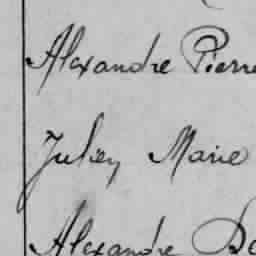 Alexandre Pierre
Julien Marie
Alexandre De